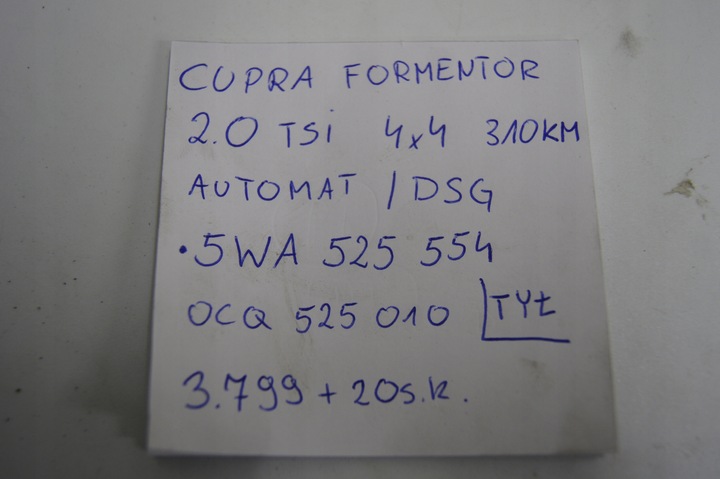 CUPRA FORMENTOR
2.0 TSi 4x4 310KM
AUTOMAT / DSG
• 5WA 525 554
OCQ 525 010 TYŁ
3.799 + 20s.k.